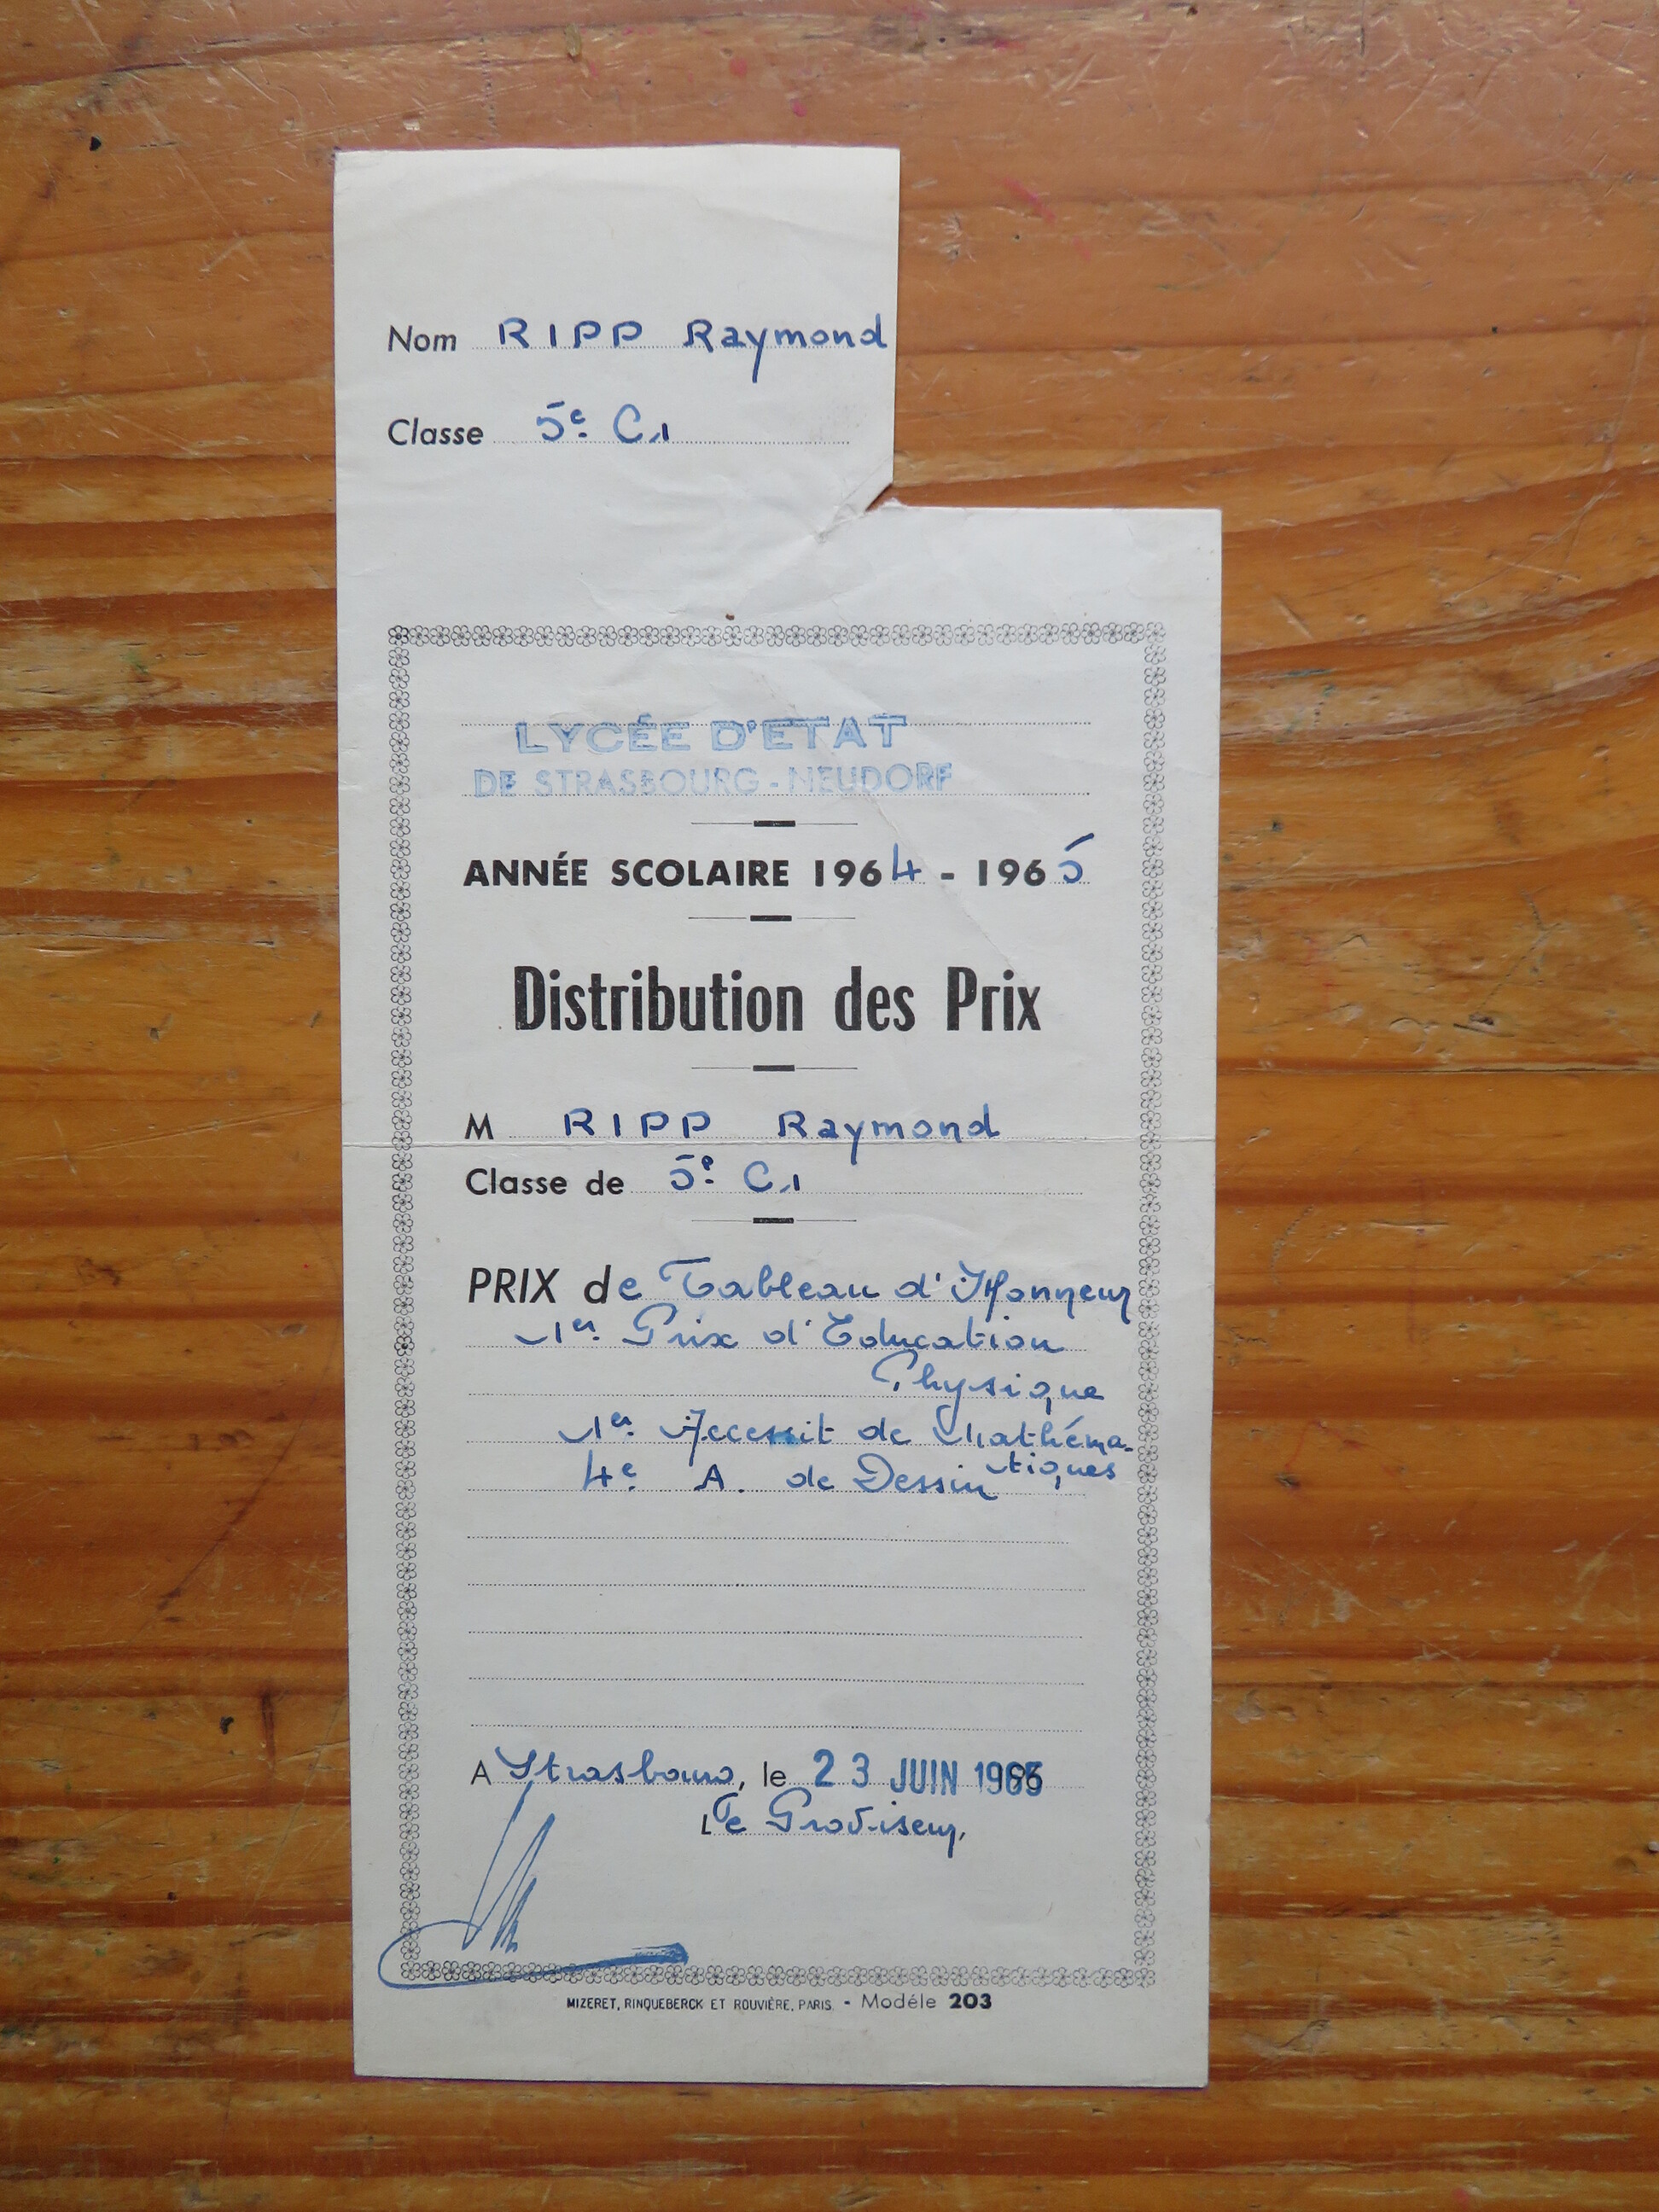 Nom RIPP Raymond
Classe 5e C1
LYCÉE D'ETAT
DE STRASBOURG - NEUDORF
ANNÉE SCOLAIRE 1964 - 1965
Distribution des Prix
M RIPP Raymond
Classe de 5e C1
PRIX de Tableau d'Honneur
1er Prix d'Education
Physique
1er Accessit de Mathéma-
tiques
4e A. de Dessin
A Strasbourg, le 23 JUIN 1965
Le Proviseur,
MIZERET, RINQUEBERCK ET ROUVIÈRE, PARIS - Modéle 203